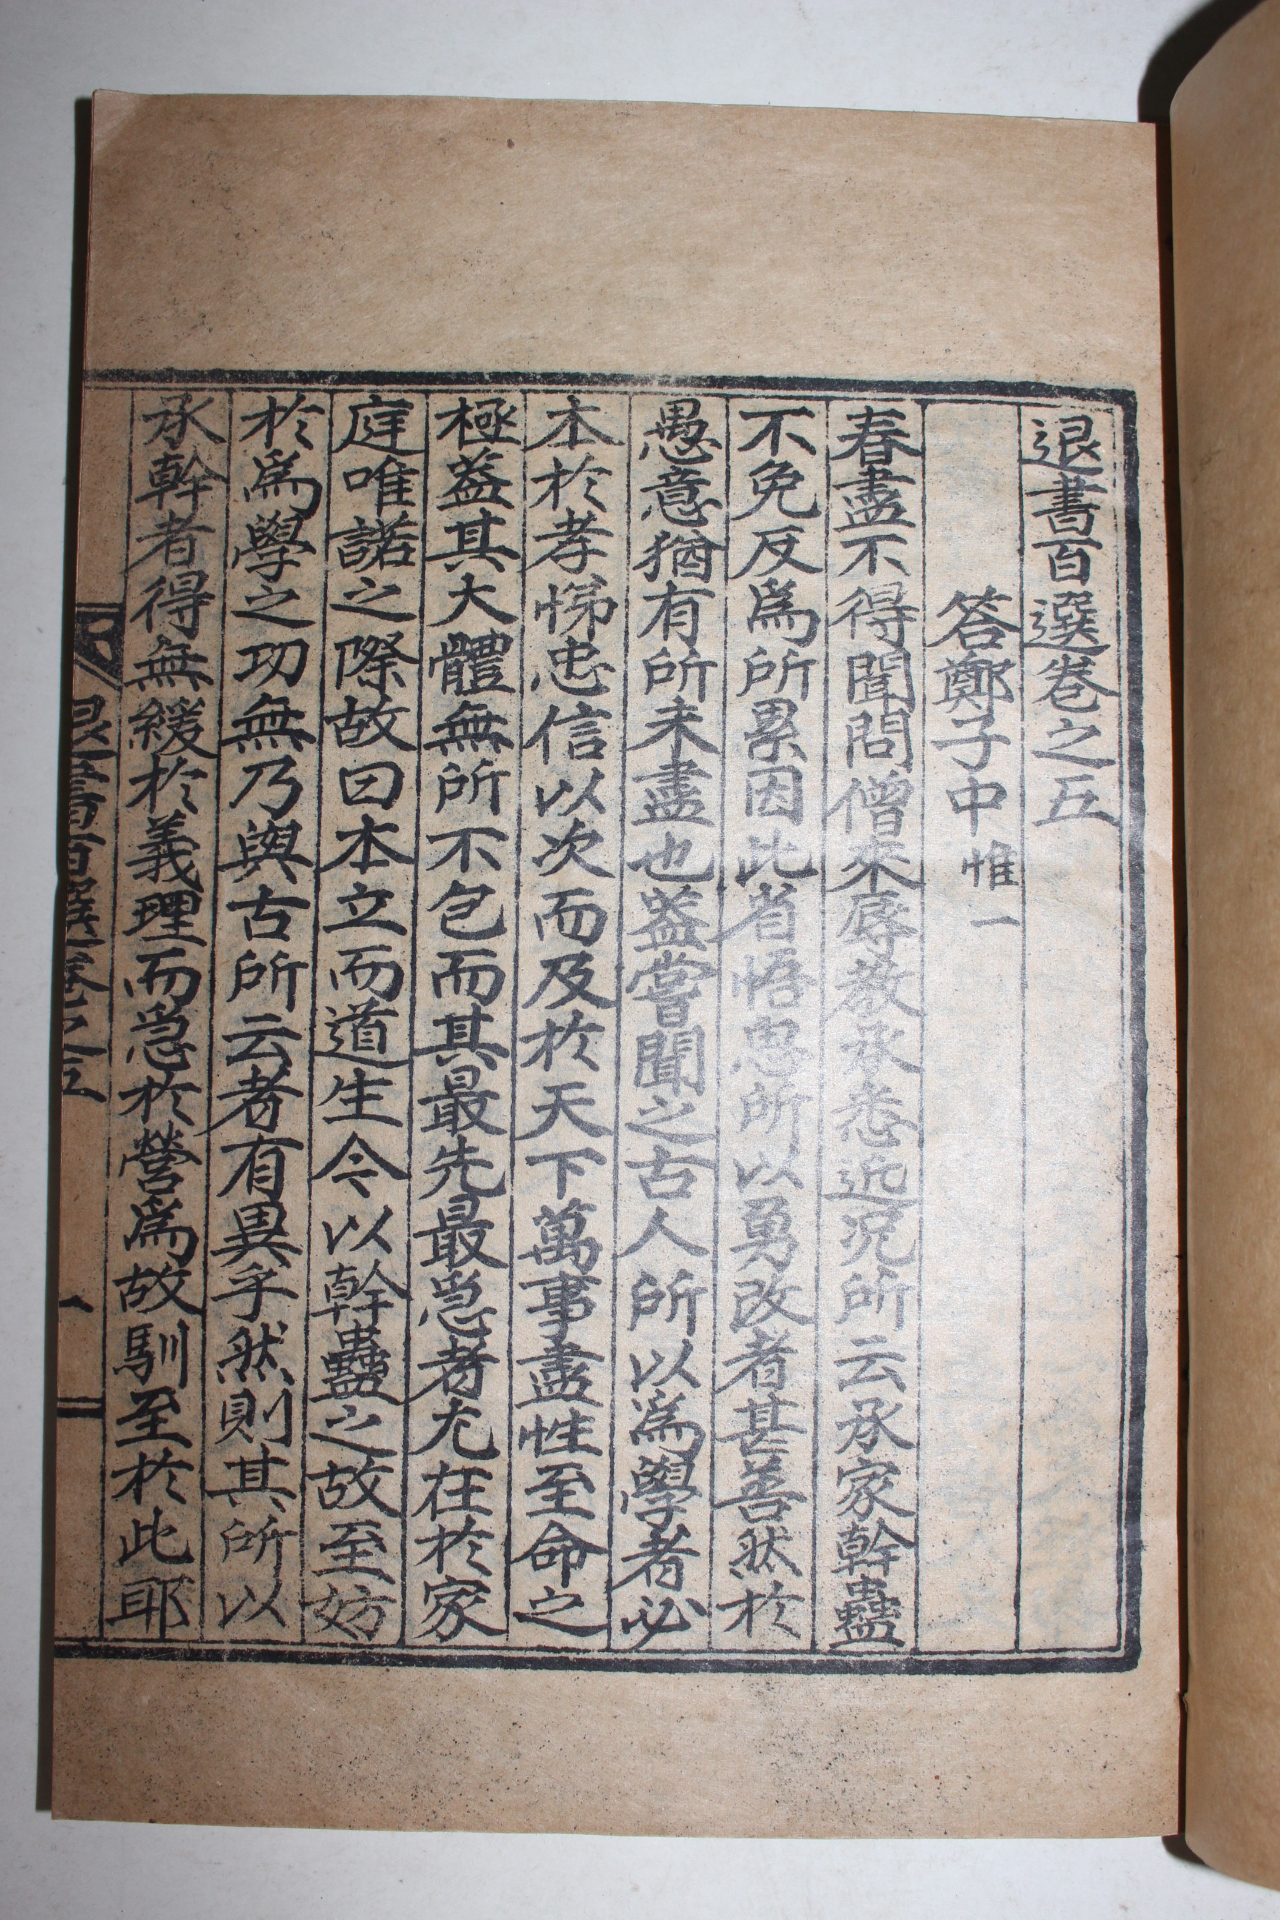 退書百選卷之五
答鄭子中 惟一
春盡不得聞問僧來辱教承悉近況所云承家幹蠱
不免反爲所累因此省悟思所以勇改者甚善然於
愚意猶有所未盡也葢嘗聞之古人所以爲學者必
本於孝悌忠信以次而及於天下萬事盡性至命之
極葢其大體無所不包而其最先最急者尤在於家
庭唯諾之際故曰本立而道生今以幹蠱之故至妨
於爲學之功無乃與古所云者有異乎然則其所以
承幹者得無緩於義理而急於營爲故馴至於此耶
退書百選卷之五
一